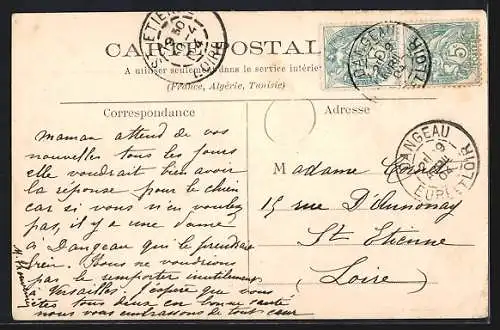 ST ETIENNE
9 30
9-4
04
LOIRE
CARTE POSTALE
A utiliser seulement dans le service intérieur
(France, Algérie, Tunisie)
DANGEAU
9
AVRIL
04
EURE-ET-LOIR
5
Correspondance
Maman attend de vos
nouvelles tous les jours
elle voudrait bien avoir
la réponse pour le chien
car si vous n'en voulez
pas, il y a une dame
à Dangeau qui le prendrait
bien. Nous ne voudrions
pas le remporter inutilement
à Versailles. J'espère que vous
êtes tous deux en bonne santé
nous vous embrassons de tout cœur
Adresse
DANGEAU
9
AVRIL
04
EURE-ET-LOIR
Madame
15 rue D'Annonay
St Etienne
(Loire)